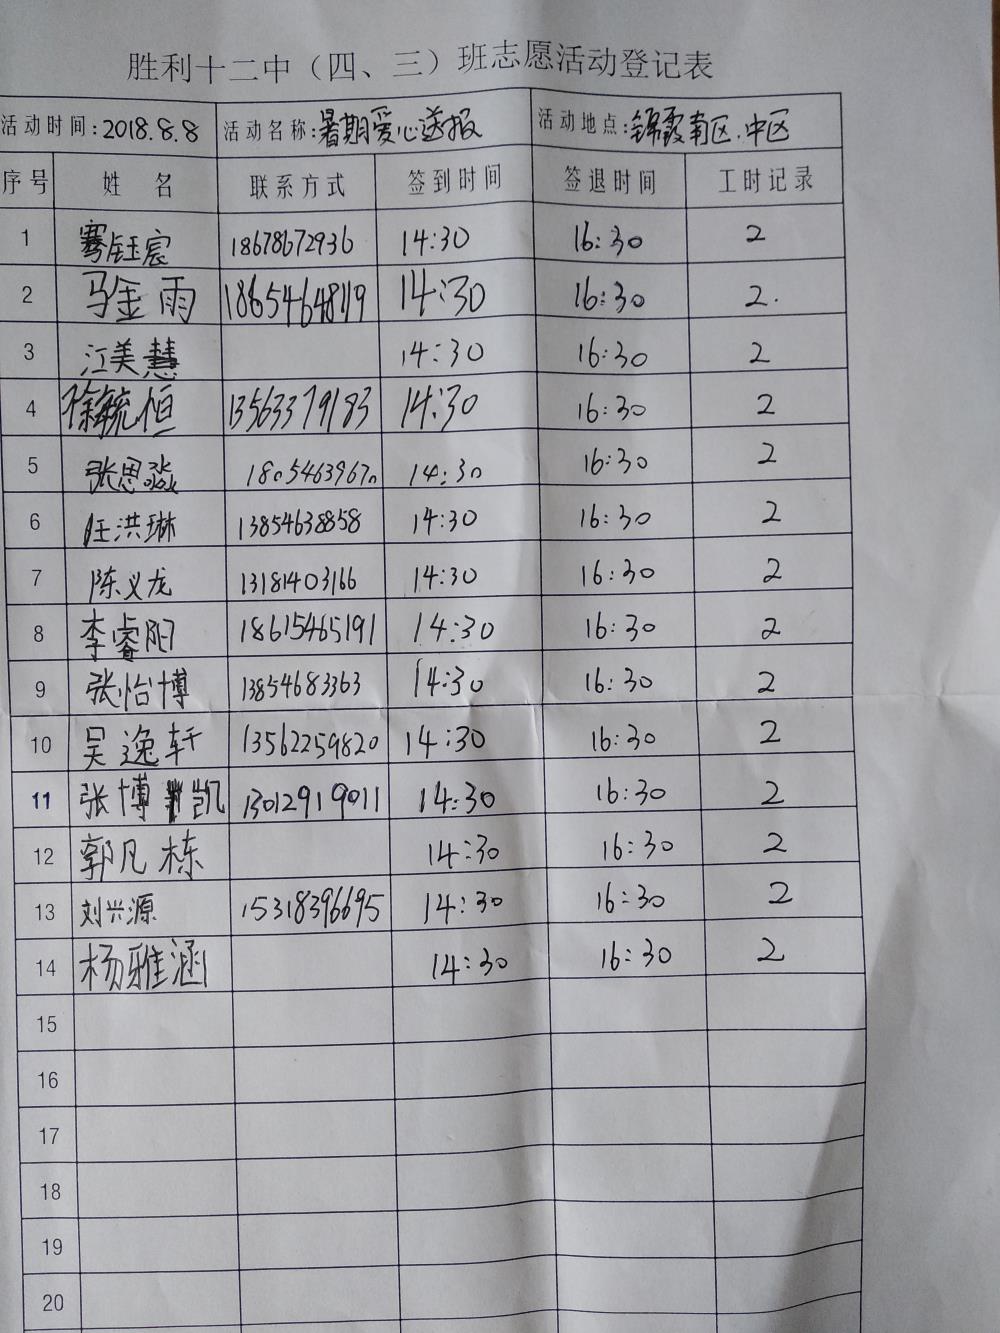 胜利十二中（四、三）班志愿活动登记表
活动时间:2018.8.8 活动名称:暑期爱心送报 活动地点:锦霞南区.中区
序号 姓名 联系方式 签到时间 签退时间 工时记录
1 骞钰宸 18678672936 14:30 16:30 2
2 马金雨 18654648119 14:30 16:30 2.
3 江美慧 14:30 16:30 2
4 徐毓恒 13563379183 14:30 16:30 2
5 张思淼 18054639670 14:30 16:30 2
6 任洪琳 13854638858 14:30 16:30 2
7 陈义龙 13181403166 14:30 16:30 2
8 李睿阳 18615465191 14:30 16:30 2
9 张怡博 13854683363 14:30 16:30 2
10 吴逸轩 13562259820 14:30 16:30 2
11 张博凯 13012919011 14:30 16:30 2
12 郭凡栋 14:30 16:30 2
13 刘兴源 15318396695 14:30 16:30 2
14 杨雅涵 14:30 16:30 2
15
16
17
18
19
20